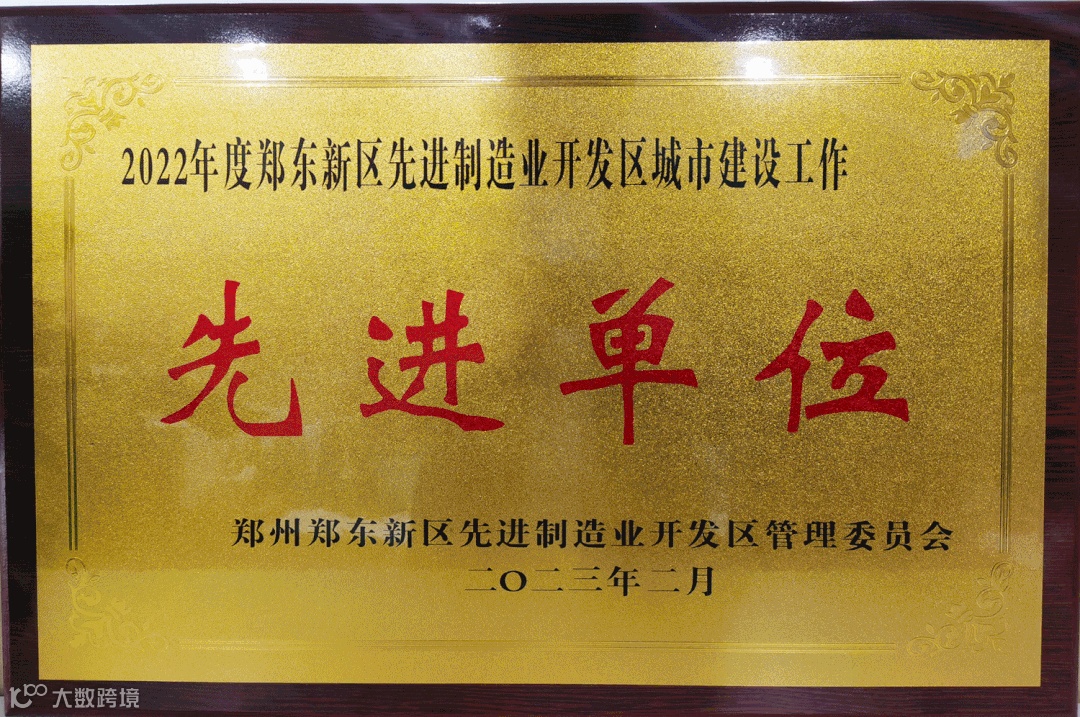 2022年度郑东新区先进制造业开发区城市建设工作
先进单位
郑州郑东新区先进制造业开发区管理委员会
二〇二三年二月
大数跨境